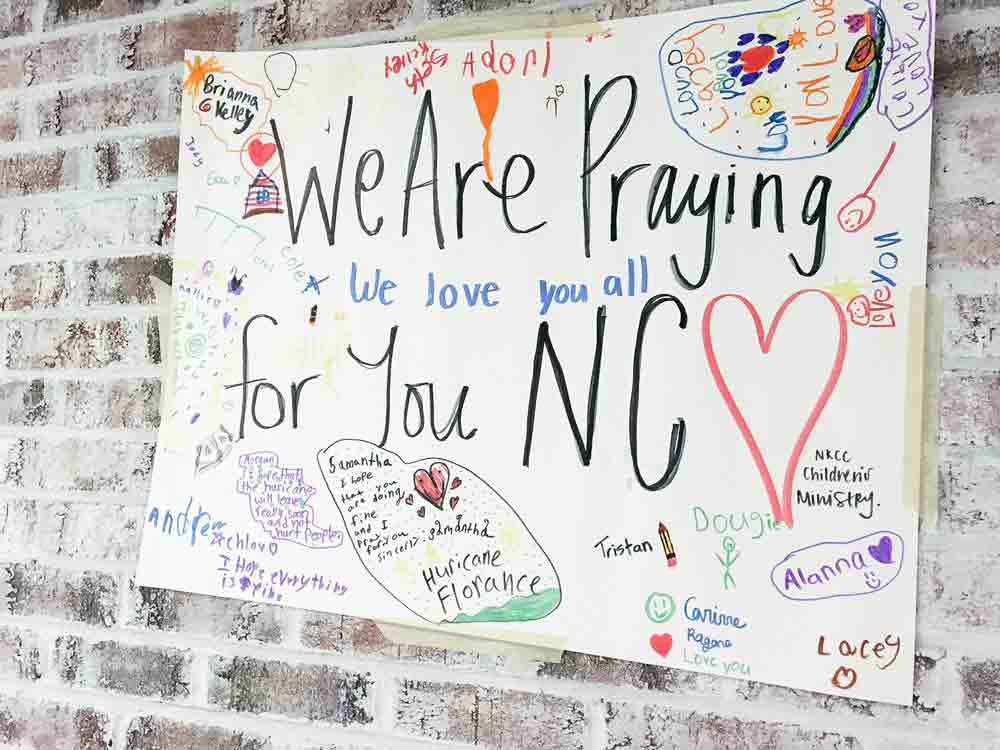 Brianna
Kelley
Adori
Love
You
Love
We Are Praying
Love
You
Cole
We love you all
for You NC
NKCC
Children's
Ministry.
Samantha
I hope
that you
are doing
fine
and I
pray
for you
sincerly: Samantha
Huricane
Florance
Morgan
the huricane
will leave
really soon
and not
hurt people.
Andrew
Chloe
I Hope everything
is fine
Tristan
Dougie
Alanna
Carinne
Ragans
Love you
Lacey